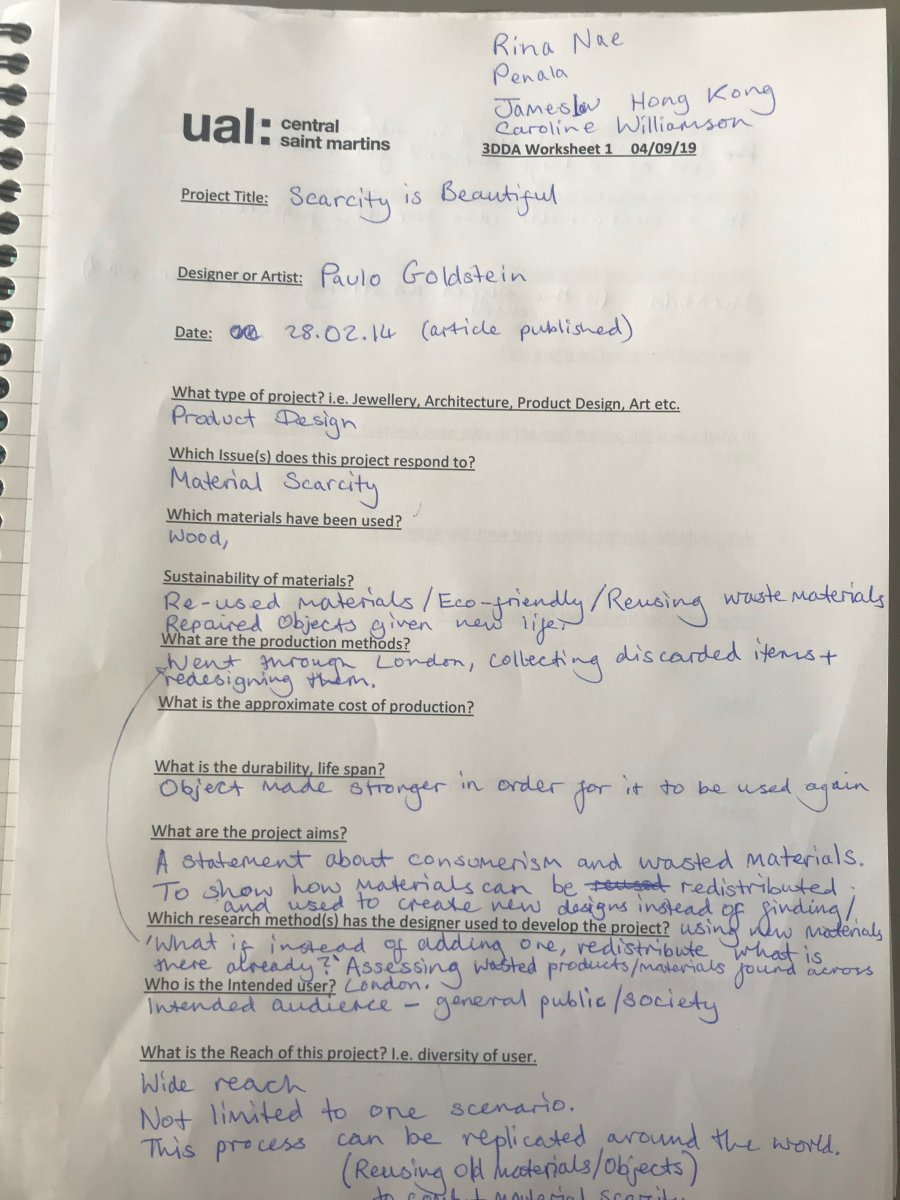 Rina Nae
Penala
James Hong Kong
Caroline Williamson
ual: central saint martins
3DDA Worksheet 1 04/09/19
Project Title: Scarcity is Beautiful
Designer or Artist: Paulo Goldstein
Date: 28.02.14 (article published)
What type of project? i.e. Jewellery, Architecture, Product Design, Art etc.
Product Design
Which Issue(s) does this project respond to?
Material Scarcity
Which materials have been used?
Wood,
Sustainability of materials?
Re-used materials/Eco-friendly/Reusing waste materials
Repaired Objects given new life.
What are the production methods?
Went through London, collecting discarded items +
redesigning them.
What is the approximate cost of production?
What is the durability, life span?
Object made stronger in order for it to be used again
What are the project aims?
A statement about consumerism and wasted materials.
To show how materials can be reused redistributed
and used to create new designs instead of finding/
using new materials
Which research method(s) has the designer used to develop the project?
'What if instead of adding one, redistribute what is
there already?' Assessing wasted products/materials found across
London.
Who is the Intended user?
Intended audience – general public/society
What is the Reach of this project? I.e. diversity of user.
Wide reach
Not limited to one scenario.
This process can be replicated around the world.
(Reusing old materials/objects)
to combat material scarcity